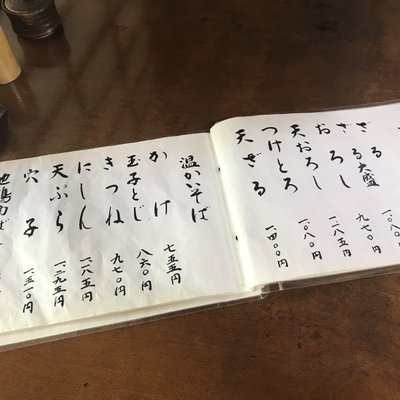 ざる
ざる大盛 一、〇八
おろし 九七〇
天おろし 一、一八五円
つけとろ 一、〇八〇円
天ざる 一、四〇〇円
温かいそば
かけ 七五五円
玉子とじ 八六〇円
きつね 九七〇円
にしん 一、一八五円
天ぷら 一、二九五円
穴子 一、五一〇円